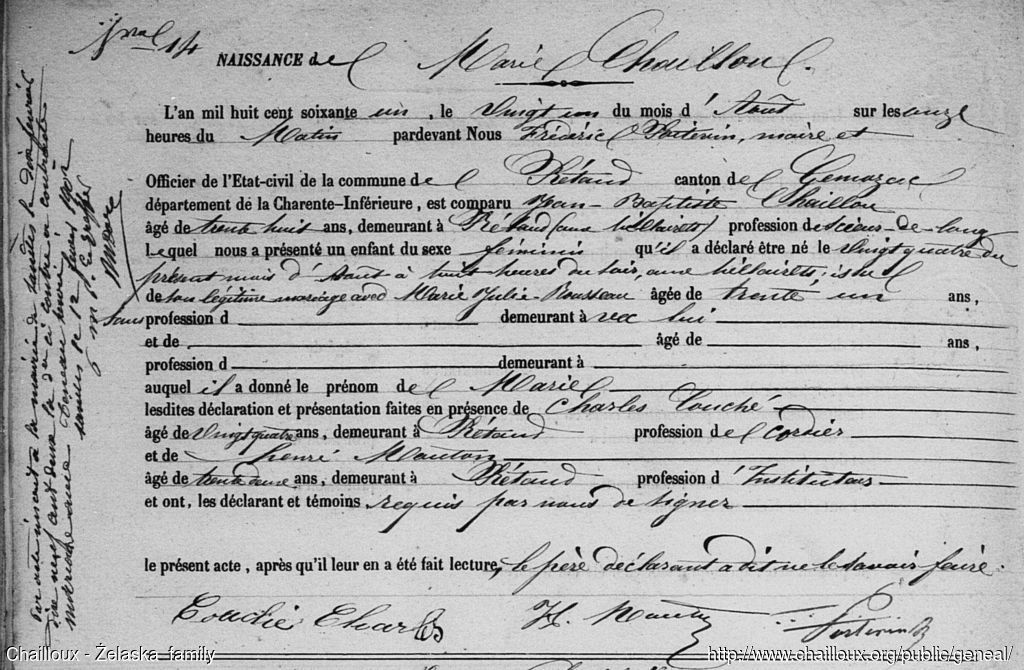 N al 14
NAISSANCE de Marie Chailloux.
L'an mil huit cent soixante un, le vingt un du mois d'Août sur les onze
heures du Matin pardevant Nous Fréderic Poitevin, maire et
Officier de l'Etat-civil de la commune de Rétaud canton de Gemozac
département de la Charente-Inférieure, est comparu Jean-Baptiste Chaillou
âgé de trente huit ans, demeurant à Rétaud profession de scieur-de-long
Lequel nous a présenté un enfant du sexe féminin qu'il a déclaré être né le vingt du
présent mois d'Août à huit heures du soir,
de son légitime mariage avec Marie Julie Rousseau âgée de trente un ans,
Sans profession d demeurant à vec lui
et de âgé de ans,
profession d demeurant à
auquel il a donné le prénom de Marie
lesdites déclaration et présentation faites en présence de Charles Couché
âgé de vingt quatre ans, demeurant à Rétaud profession de Cordier
et de henri Mauton
âgé de trente ans, demeurant à Rétaud profession d'Instituteur
et ont, les déclarant et témoins requis par nous de signer
le présent acte, après qu'il leur en a été fait lecture, le père déclarant a dit ne le savoir faire.
Couché Charles H. Poitevin
Par acte inscrit à la mairie de le dix
mil neuf cent deux la d'en ci contre a contracté
mariage avec
Chailloux - Żelaska family http://www.chailloux.org/public/geneal/